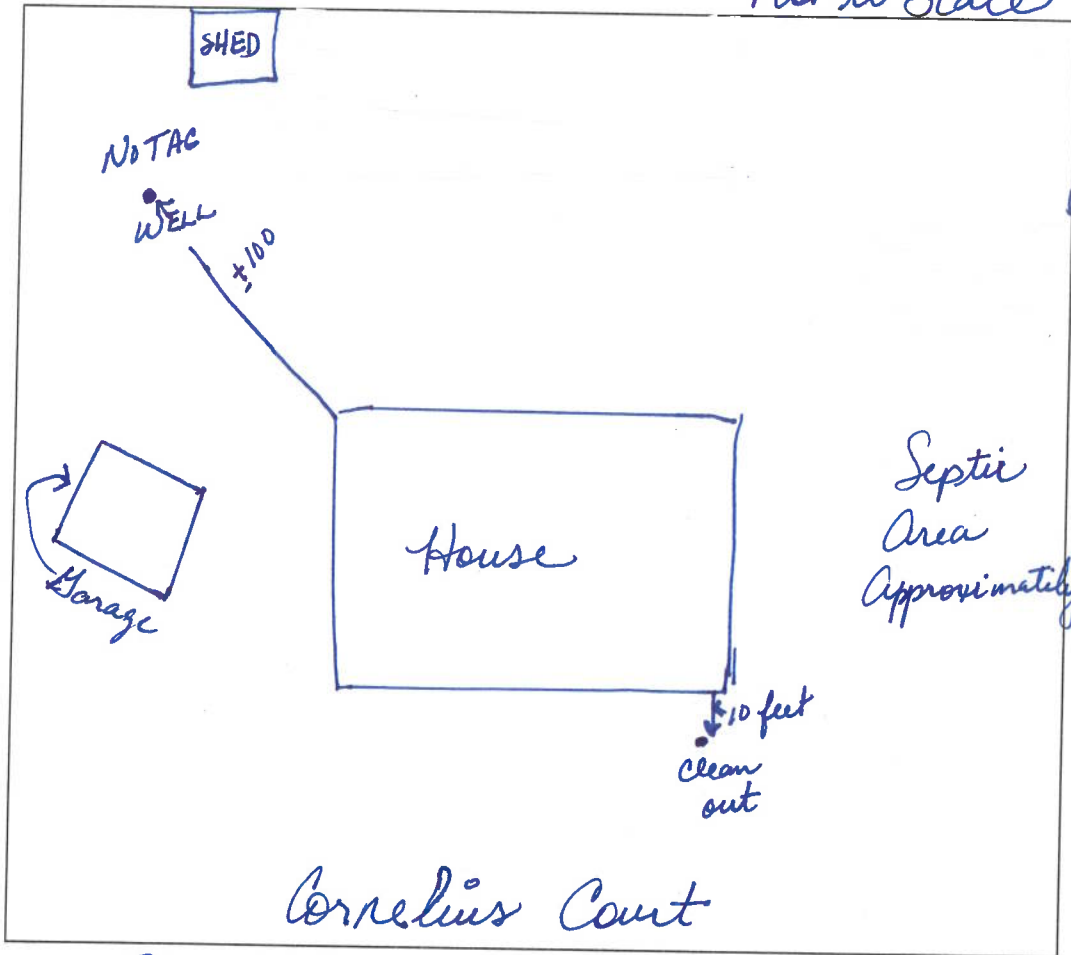 SHED
NO TAG
WELL
±100
House
Septic
Area
Approximately
Garage
10 feet
Clean
out
Cornelius Court